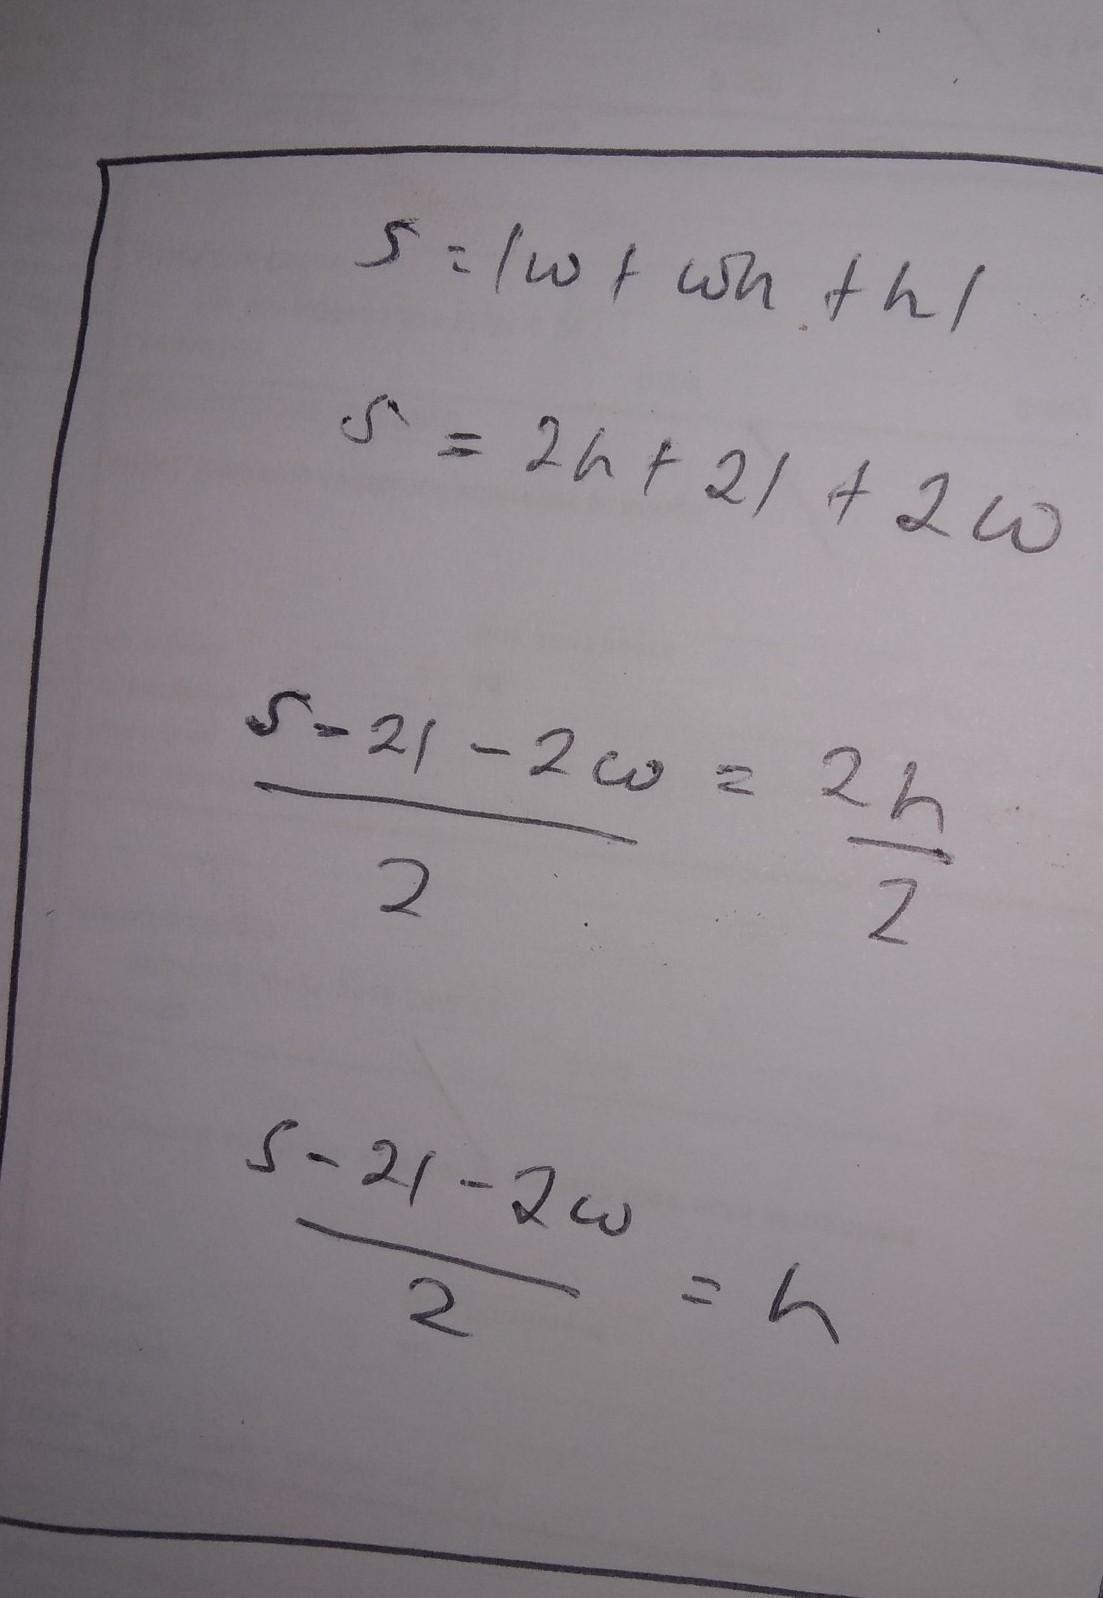 S = lw + wh + hl
S = 2h + 2l + 2w
S - 2l - 2w = 2h
2 2
S - 2l - 2w
2 = h